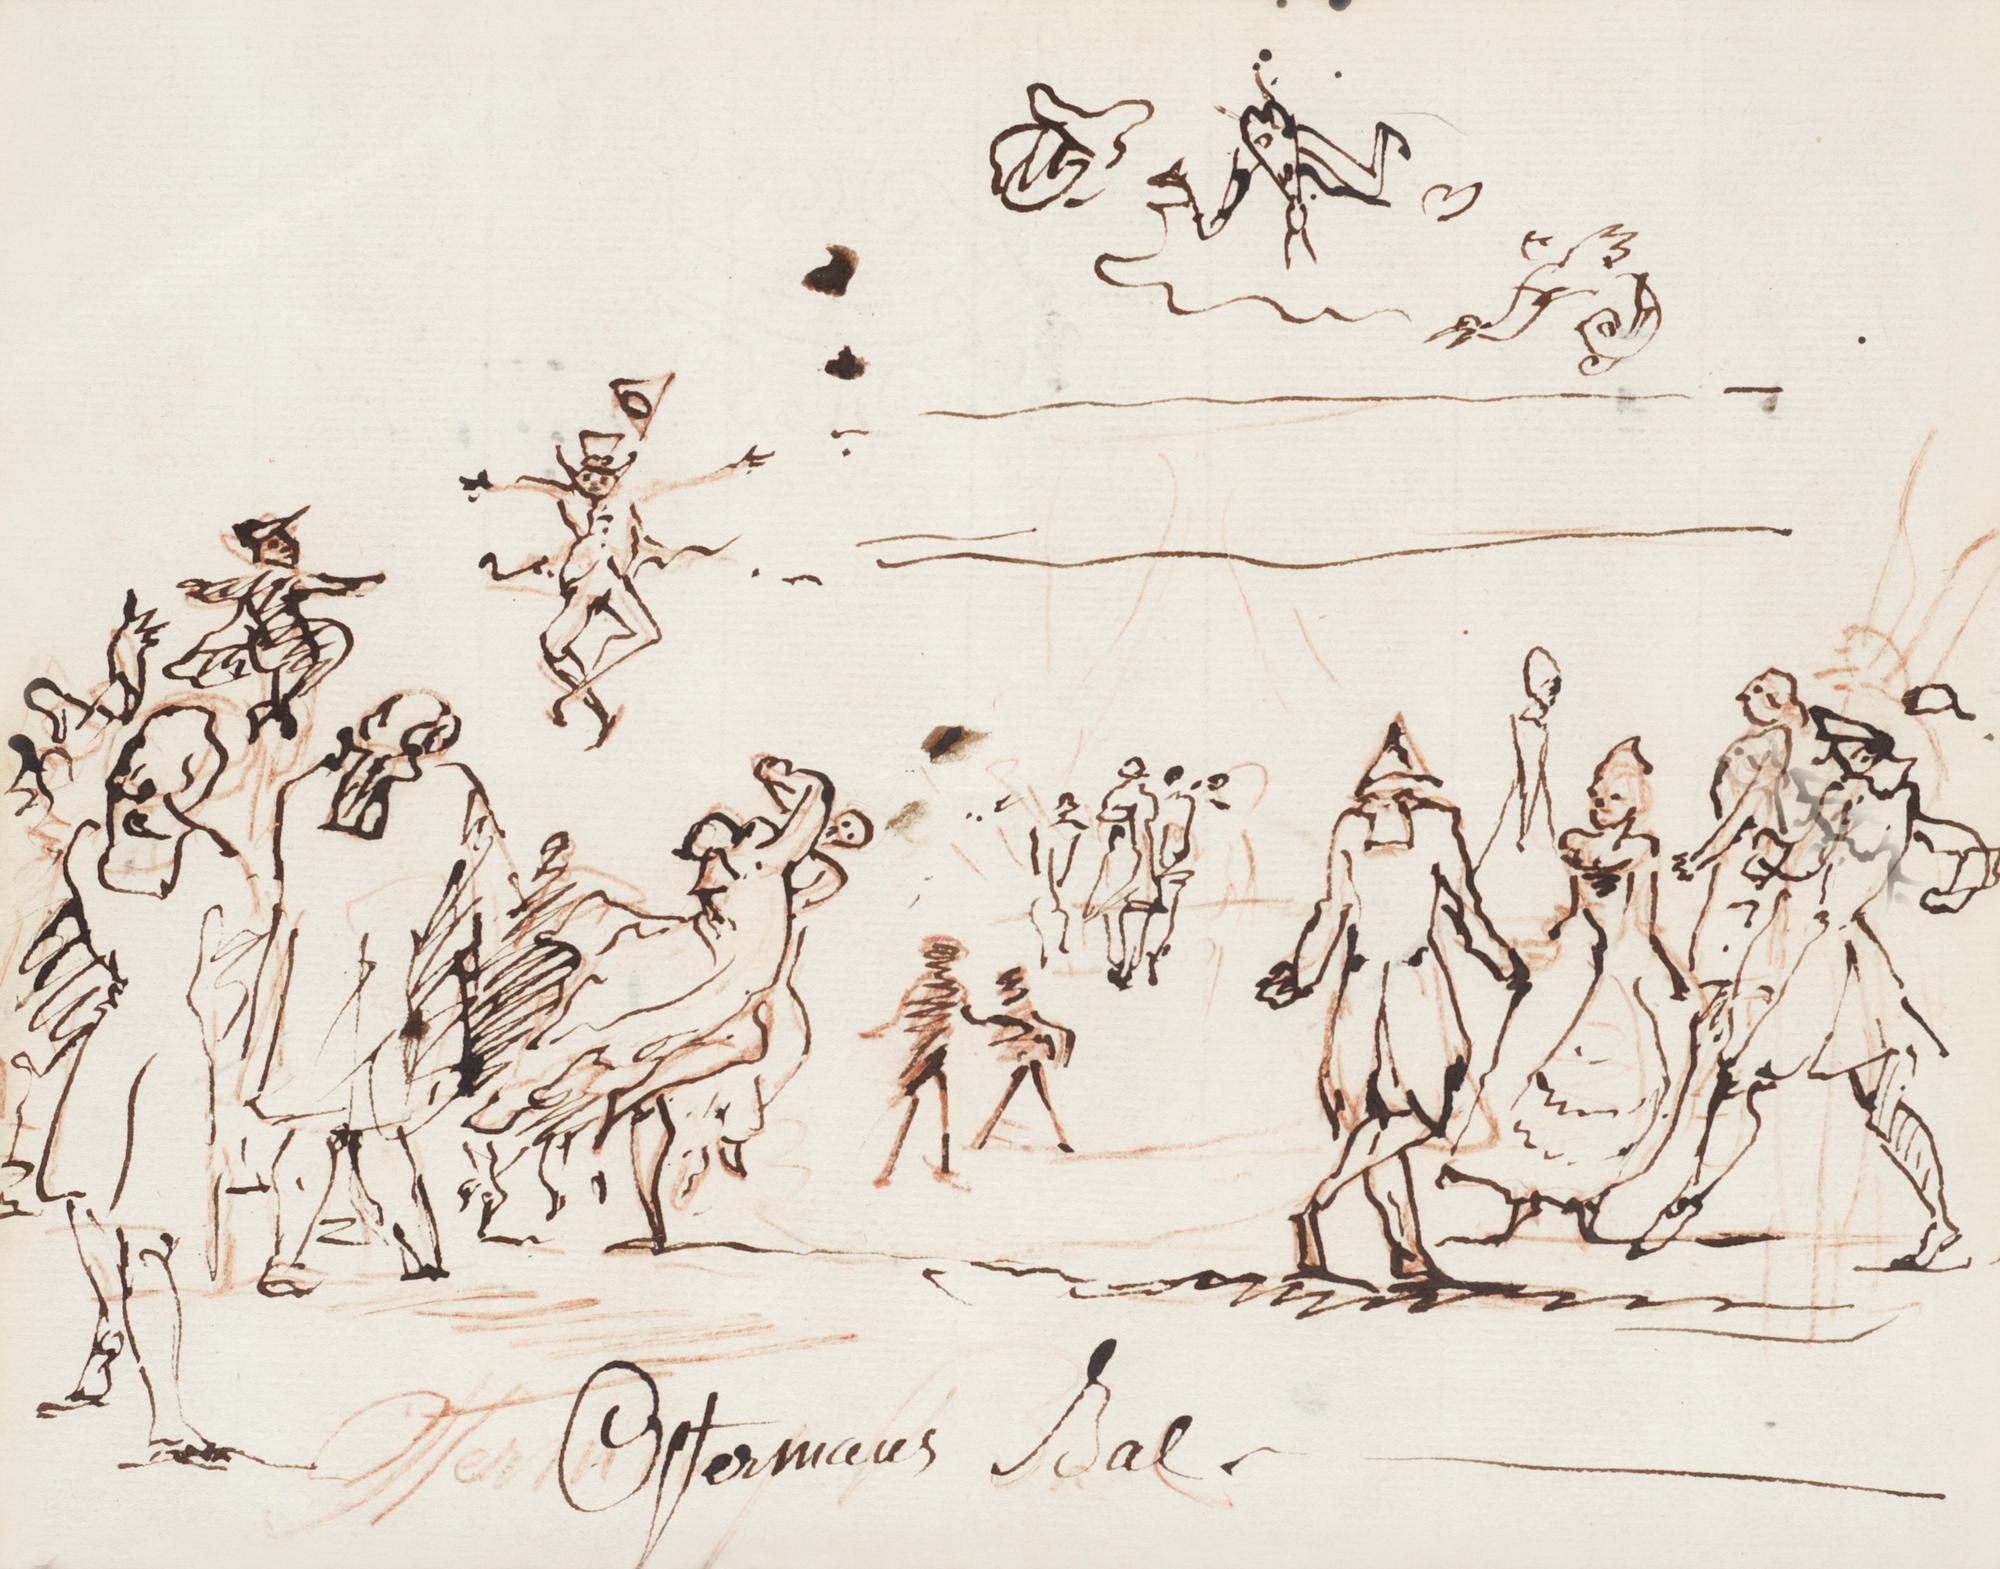 Ostermans Bal